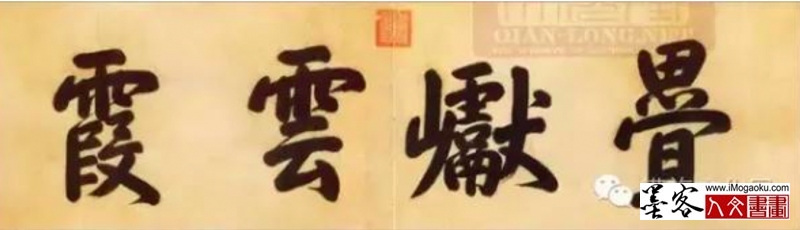 疊巘雲霞
QIAN-LONG.NET
www.iMogaoku.com
墨客
人文書畫